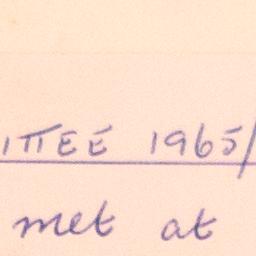 ITTEE 1965/
met at